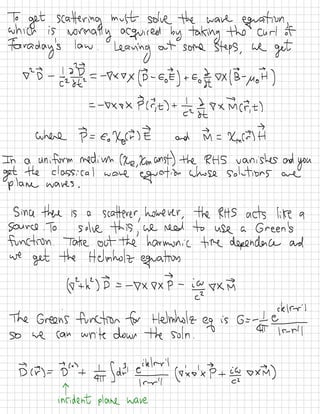 To get scattering must solve the wave equation,
which is normally acquired by taking the curl of
Faraday's law. Leaving out some steps, we get
∇²D⃗ - 1/c² ∂²D⃗/∂t² = -∇×∇×(D⃗-ε₀E⃗) + ε₀ ∂/∂t ∇×(B⃗-μ₀H⃗)
= -∇×∇× P⃗(r⃗,t) + 1/c² ∂/∂t ∇×M⃗(r⃗,t)
where P⃗ = ε₀ χₑ(r⃗)E⃗ and M⃗ = χₘ(r⃗)H⃗
In a uniform medium (χₑ, χₘ const) the RHS vanishes and you
get the classical wave equation whose solutions are
plane waves.
Since there is a scatterer, however, the RHS acts like a
source. To solve this, we need to use a Green's
function. Take out the harmonic time dependence and
we get the Helmholz equation
(∇²+k²)D⃗ = -∇×∇×P⃗ - iω/c² ∇×M⃗
The Greens function for Helmholz eq is G = -1/4π e^(ik|r-r'|)/|r-r'|
so we can write down the soln.
D⃗(r⃗) = D⃗⁽⁰⁾ + 1/4π ∫dr⃗' e^(ik|r-r'|)/|r-r'| (∇'×∇'×P⃗ + iω/c² ∇×M⃗)
incident plane wave